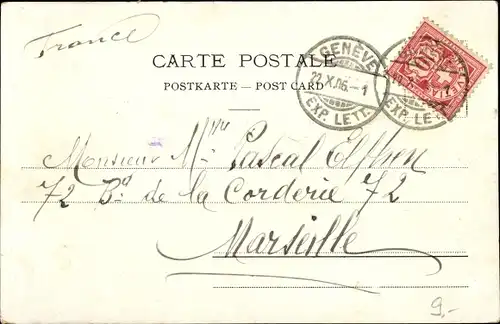 France
CARTE POSTALE
POSTKARTE — POST CARD
GENÈVE
22.X.06.-1
EXP. LETT.
EXP. LETT.
Monsieur Pascal
72 Bd de la Corderie 72
Marseille
9,-